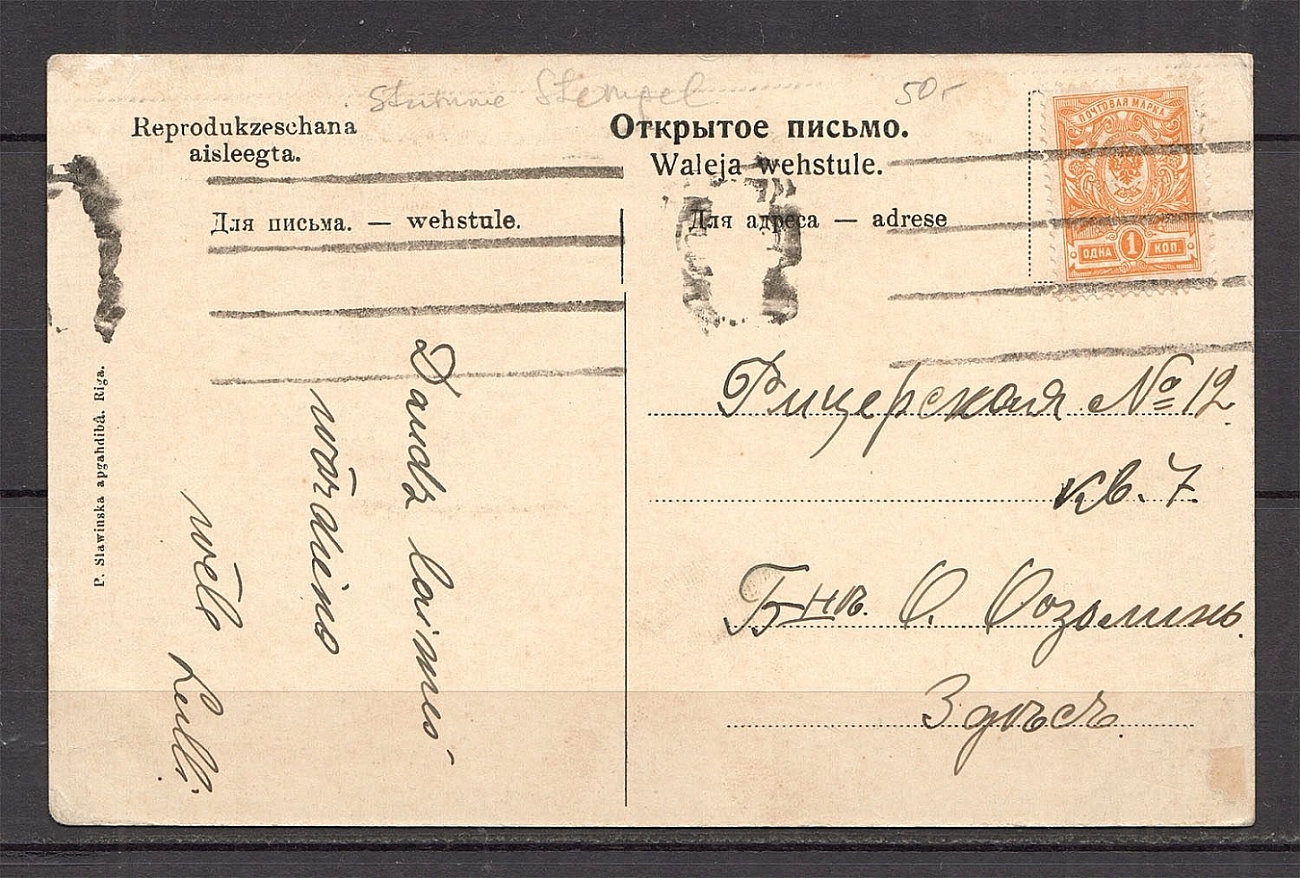 Stumme Stempel
50.-
Reprodukzeschana
aisleegta.
Открытое письмо.
Waleja wehstule.
Для письма. — wehstule.
Для адреса — adrese
ПОЧТОВАЯ МАРКА
ОДНА 1 КОП.
P. Slawinska apgahdibâ. Riga.
Daudz laimes
wārdeino
wēle
Рицерская № 12
кв. 7.
Бнѣ. О. Озолинь.
Здѣсь.